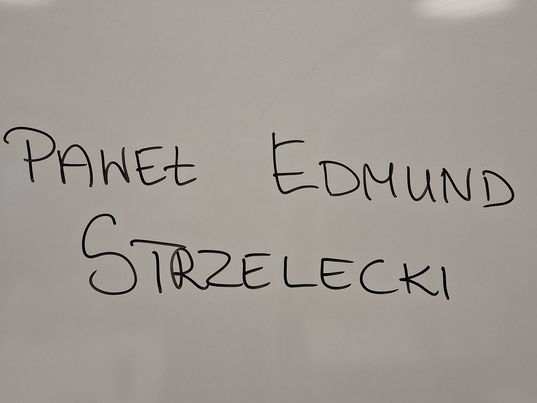 PAWEŁ EDMUND
STRZELECKI